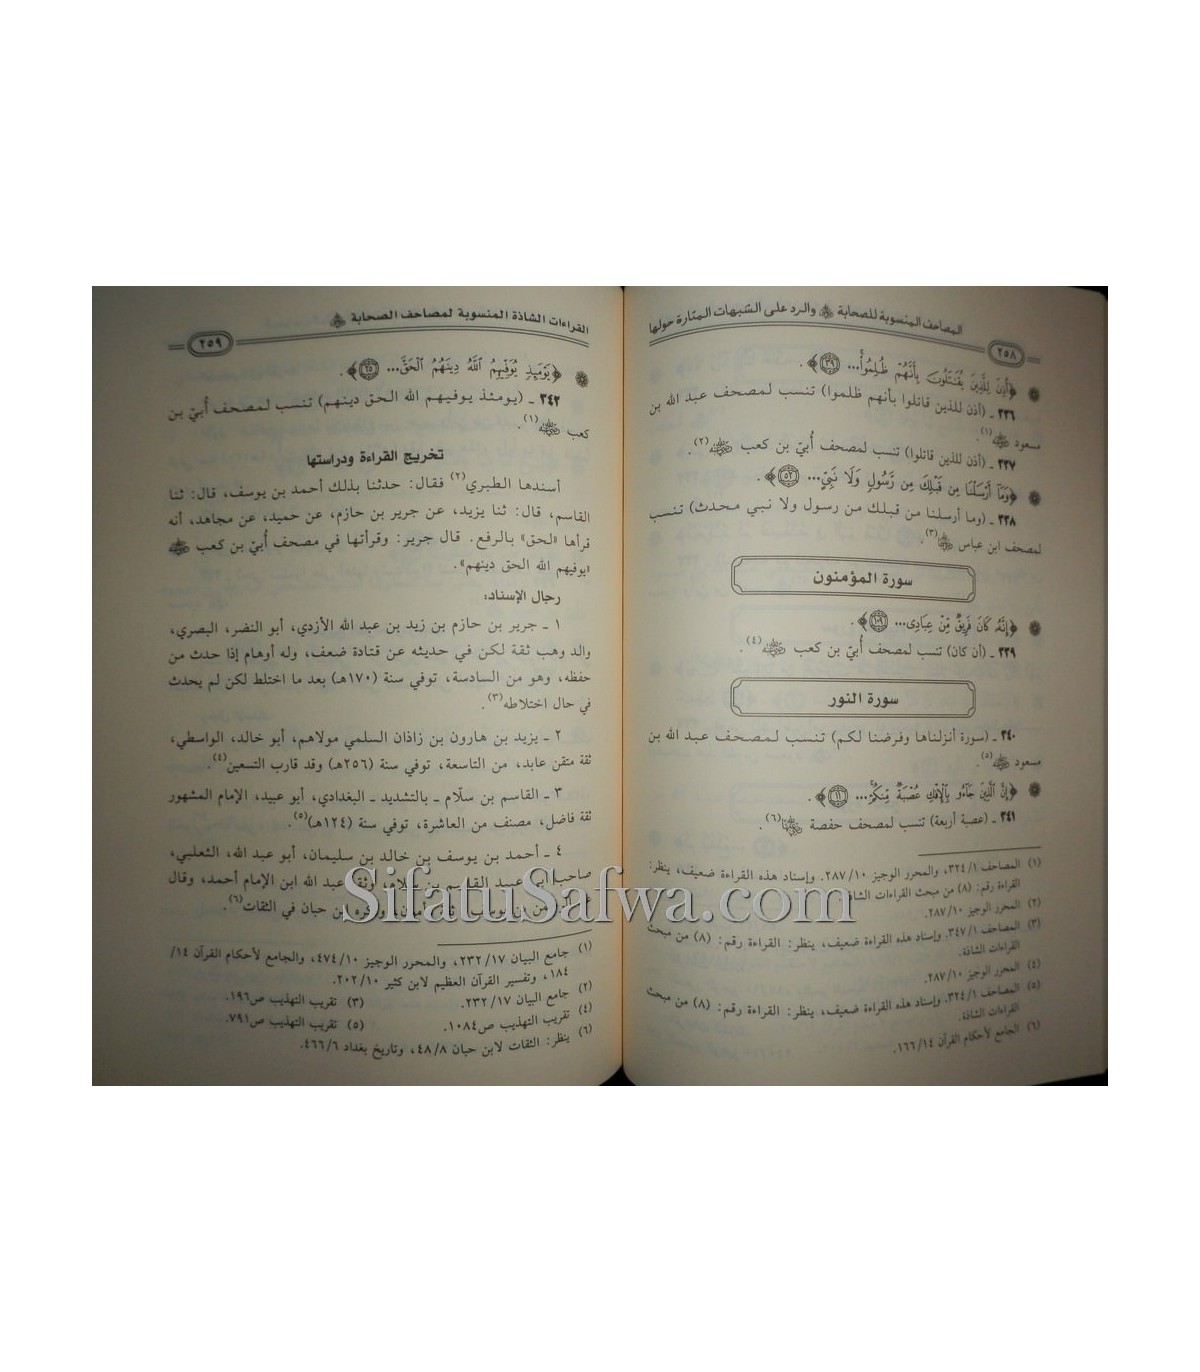 المصاحف المنسوبة للصحابة ﷺ والرد على الشبهات المثارة حولها
٢٥٨
﴿أُذِنَ لِلَّذِينَ يُقَٰتَلُونَ بِأَنَّهُمْ ظُلِمُوا۟ۚ... ٣٩﴾.
٣٣٦ ـ (أذن للذين قاتلوا بأنهم ظلموا) تنسب لمصحف عبد الله بن
مسعود (١).
٣٣٧ ـ (أذن للذين قاتلوا) تنسب لمصحف أُبيّ بن كعب (٢).
﴿وَمَآ أَرْسَلْنَا مِن قَبْلِكَ مِن رَّسُولٍ وَلَا نَبِىٍّ... ٥٢﴾.
٣٣٨ ـ (وما أرسلنا من قبلك من رسول ولا نبي محدث) تنسب
لمصحف ابن عباس (٣).
سورة المؤمنون
﴿إِنَّهُۥ كَانَ فَرِيقٌ مِّنْ عِبَادِى... ١٠٩﴾.
٣٣٩ ـ (أن كان) تنسب لمصحف أُبيّ بن كعب (٤).
سورة النور
٣٤٠ ـ (سورة أنزلناها وفرضنا لكم) تنسب لمصحف عبد الله بن
مسعود (٥).
﴿إِنَّ الَّذِينَ جَآءُو بِالْإِفْكِ عُصْبَةٌ مِّنكُمْۚ... ١١﴾.
٣٤١ ـ (عصبة أربعة) تنسب لمصحف حفصة (٦).
(١) المصاحف ٣٢٤/١، والمحرر الوجيز ٢٨٧/١٠. وإسناد هذه القراءة ضعيف، ينظر:
القراءة رقم: (٨) من مبحث القراءات الشاذة.
(٢) المحرر الوجيز ٢٨٧/١٠.
(٣) المصاحف ٣٤٧/١. وإسناد هذه القراءة ضعيف، ينظر: القراءة رقم: (٨) من مبحث
القراءات الشاذة.
(٤) المحرر الوجيز ٢٨٧/١٠.
(٥) المصاحف ٣٢٤/١. وإسناد هذه القراءة ضعيف، ينظر: القراءة رقم: (٨) من مبحث
القراءات الشاذة.
(٦) الجامع لأحكام القرآن ١٦٦/١٤.
القراءات الشاذة المنسوبة لمصاحف الصحابة
٢٥٩
﴿يَوْمَئِذٍ يُوَفِّيهِمُ اللَّهُ دِينَهُمُ الْحَقَّ... ٢٥﴾.
٣٤٢ ـ (يومئذ يوفيهم الله الحق دينهم) تنسب لمصحف أُبيّ بن
كعب (١).
تخريج القراءة ودراستها
أسندها الطبري(٢) فقال: حدثنا بذلك أحمد بن يوسف، قال: ثنا
القاسم، قال: ثنا يزيد، عن جرير بن حازم، عن حميد، عن مجاهد، أنه
قرأها «لحق» بالرفع. قال جرير: وقرأتها في مصحف أُبيّ بن كعب
«يوفيهم الله الحق دينهم».
رجال الإسناد:
١ ـ جرير بن حازم بن زيد بن عبد الله الأزدي، أبو النضر، البصري،
والد وهب ثقة لكن في حديثه عن قتادة ضعف، وله أوهام إذا حدث من
حفظه، وهو من السادسة، توفي سنة (١٧٠هـ) بعد ما اختلط لكن لم يحدث
في حال اختلاطه(٣).
٢ ـ يزيد بن هارون بن زاذان السلمي مولاهم، أبو خالد، الواسطي،
ثقة متقن عابد، من التاسعة، توفي سنة (٢٥٦هـ) وقد قارب التسعين(٤).
٣ ـ القاسم بن سلّام ـ بالتشديد ـ البغدادي، أبو عبيد، الإمام المشهور
ثقة فاضل، مصنف من العاشرة، توفي سنة (١٢٤هـ)(٥).
٤ ـ أحمد بن يوسف بن خالد بن سليمان، أبو عبد الله، الثعلبي،
صاحب أبي عبيد القاسم بن سلام، وثقه عبد الله ابن الإمام أحمد، وقال
بن يوسف: ثقة مأمون، وذكره ابن حبان في الثقات(٦).
SifatuSafwa.com
(١) جامع البيان ٢٣٢/١٧، والمحرر الوجيز ٤٧٤/١٠، والجامع لأحكام القرآن ١٤/
١٨٤، وتفسير القرآن العظيم لابن كثير ٢٠٢/١٠.
(٢) جامع البيان ٢٣٢/١٧. (٣) تقريب التهذيب ص١٩٦.
(٤) تقريب التهذيب ص١٠٨٤. (٥) تقريب التهذيب ص٧٩١.
(٦) ينظر: الثقات لابن حبان ٤٨/٨، وتاريخ بغداد ٤٦٦/٦.